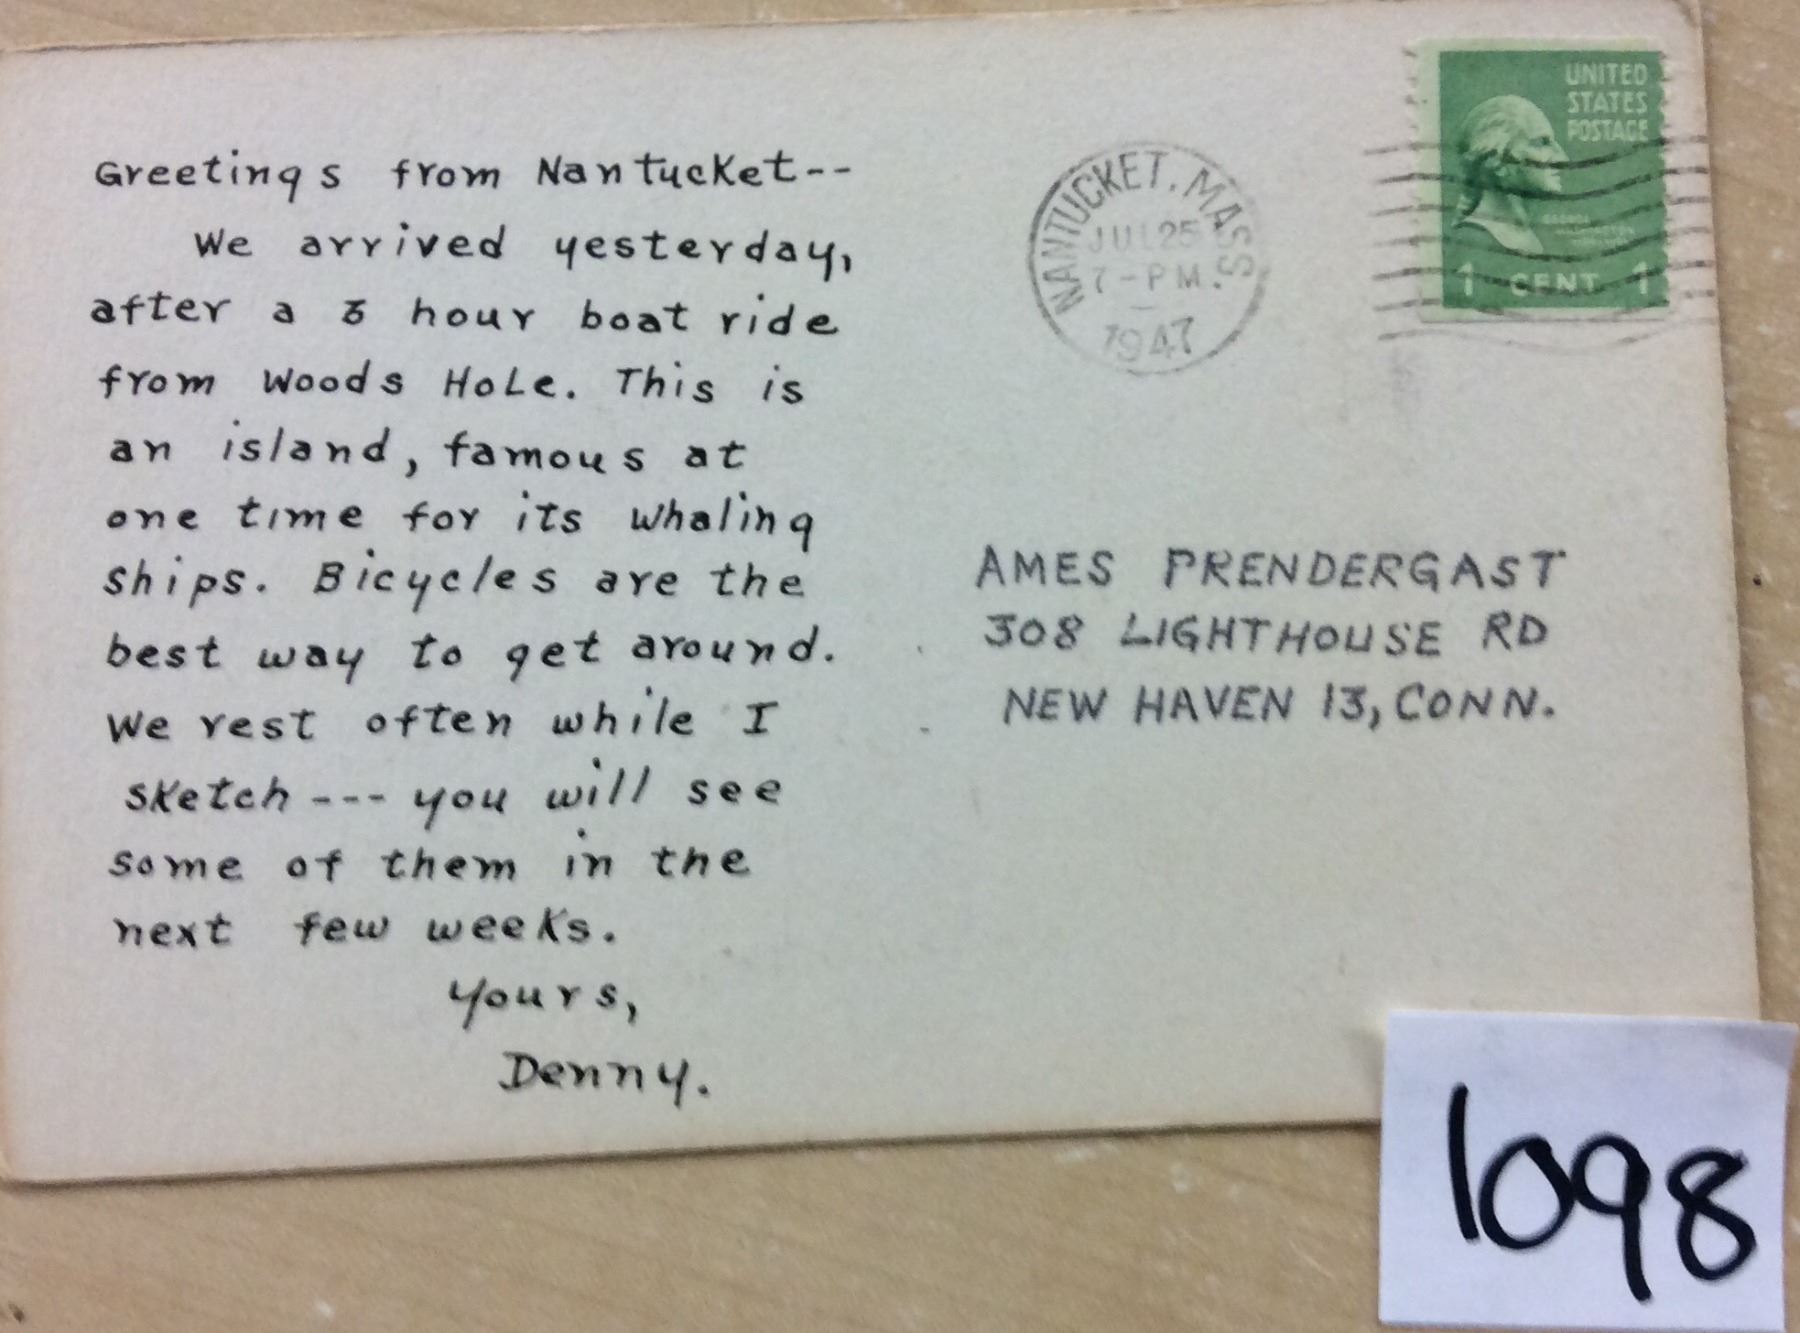 Greetings from Nantucket--
We arrived yesterday,
after a 3 hour boat ride
from Woods Hole. This is
an island, famous at
one time for its whaling
ships. Bicycles are the
best way to get around.
We rest often while I
sketch --- you will see
some of them in the
next few weeks.
Yours,
Denny.
NANTUCKET, MASS.
JUL 25
7-PM
1947
UNITED
STATES
POSTAGE
GEORGE
WASHINGTON
1 CENT 1
AMES PRENDERGAST
308 LIGHTHOUSE RD
NEW HAVEN 13, CONN.
1098